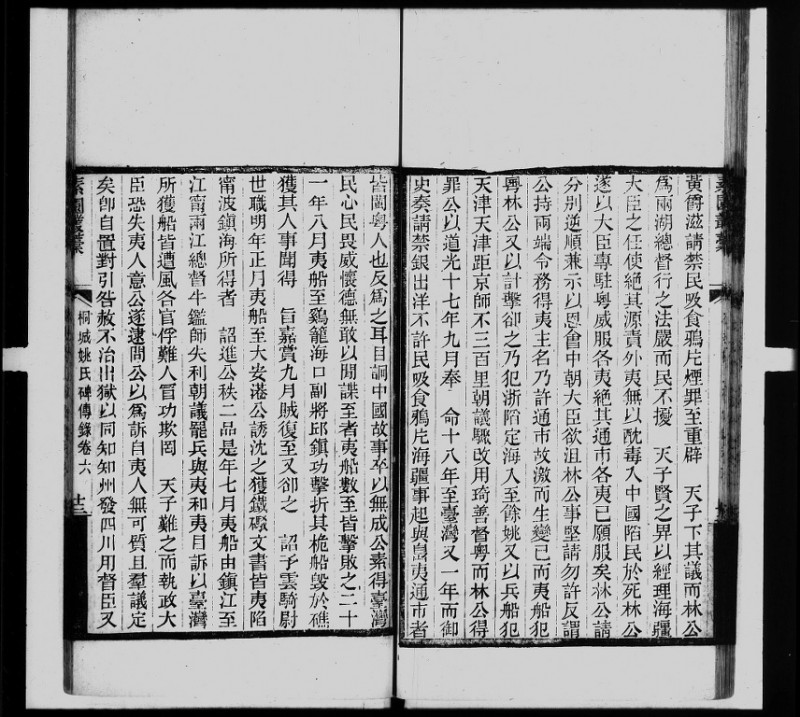 素園叢稿
黃爵滋請禁民吸食鴉片煙罪至重辟　天子下其議而林公
爲兩湖總督行之法嚴而民不擾　天子賢之畀以經理海疆
大臣之任使絕其源責外夷無以酖毒入中國陷民於死林公
遂以大臣專駐粵威服各夷絕其通市各夷已願服矣林公請
分別逆順兼示以恩會中朝大臣欲沮林公事堅請勿許反謂
公持兩端令務得夷主名乃許通市故激而生變已而夷船犯
粵林公又以計擊卻之乃犯浙陷定海入至餘姚又以兵船犯
天津天津距京師不三百里朝議驟改用琦善督粵而林公得
罪公以道光十七年九月奉　命十八年至臺灣又一年而御
史奏請禁銀出洋不許民吸食鴉片海疆事起與島夷通市者
皆閩粵人也反爲之耳目詗中國故事卒以無成公素得臺灣
民心民畏威懷德無敢以閒諜至者夷船數至皆擊敗之二十
一年八月夷船至鷄籠海口副將邱鎮功擊折其桅船毀於礁
獲其人事聞得　旨嘉賞九月賊復至又卻之　詔予雲騎尉
世職明年正月夷船至大安港公誘沈之獲鐵礮文書皆夷陷
甯波鎮海所得者　詔進公秩二品是年七月夷船由鎮江至
江甯兩江總督牛鑑師失利朝議罷兵與夷和夷目訴以臺灣
所獲船皆遭風各官俘難人冒功欺罔　天子難之而執政大
臣恐失夷人意公遂逮問公以爲訴自夷人無可質且羣議定
矣卽自置對引咎赦不治出獄以同知知州發四川用督臣又
素園叢稿
桐城姚氏碑傳錄卷六